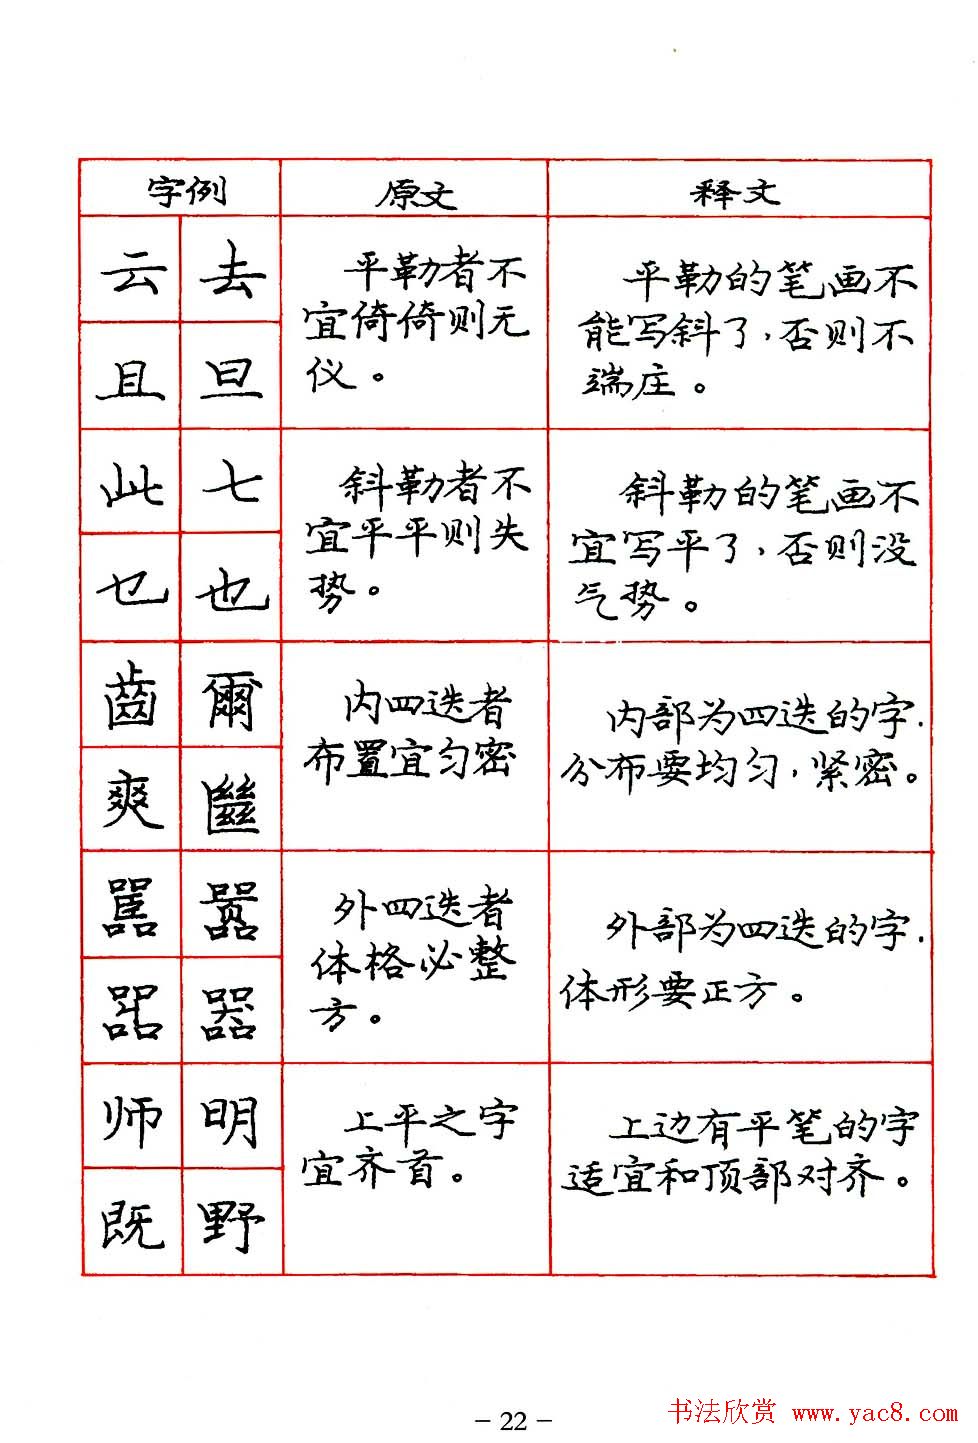 字例 原文 释文
云 去
且 旦
平勒者不
宜倚倚则无
仪。
平勒的笔画不
能写斜了,否则不
端庄。
此 七
乜 也
斜勒者不
宜平平则失
势。
斜勒的笔画不
宜写平了,否则没
气势。
齒 爾
爽
内四迭者
布置宜匀密
内部为四迭的字.
分布要均匀,紧密。
嚣
器
外四迭者
体格必整
方。
外部为四迭的字.
体形要正方。
师 明
既 野
上平之字
宜齐首。
上边有平笔的字
适宜和顶部对齐。
- 22 -
书法欣赏 www.yac8.com